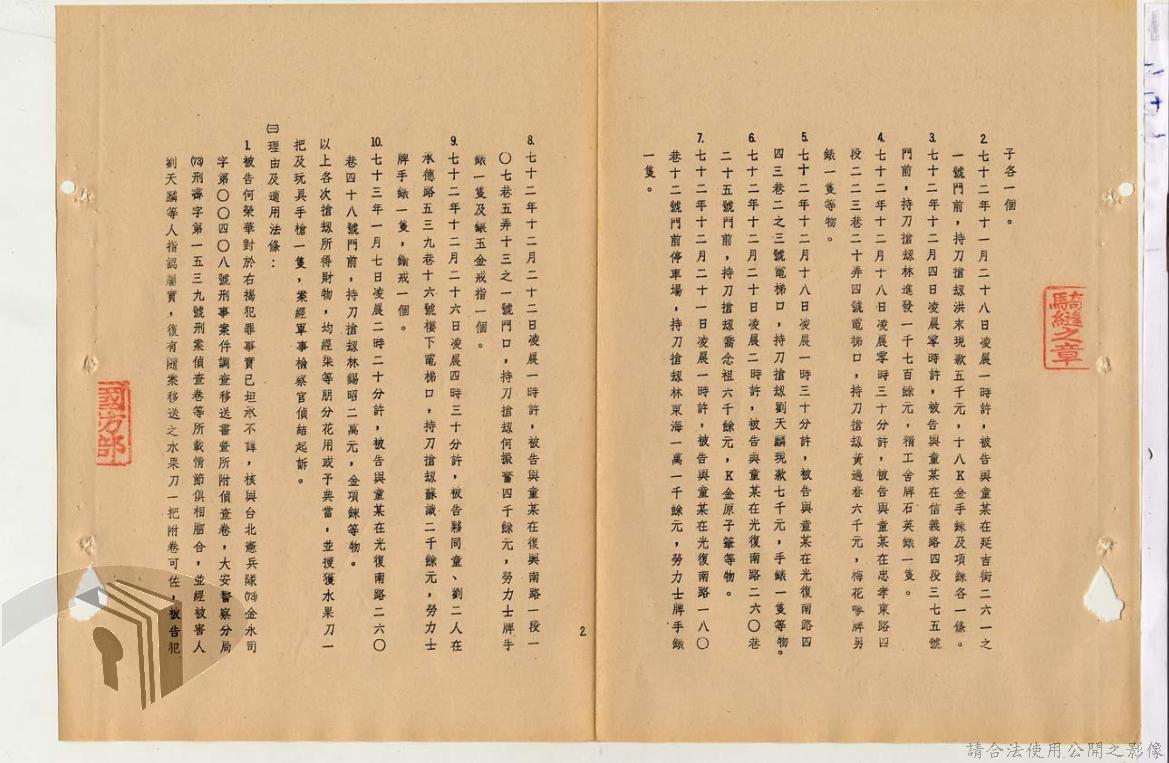 子各一個。
2.七十二年十一月二十八日凌晨一時許，被告與童某在延吉街二六一之
一號門前，持刀搶劫洪末現款五千元，十八K金手鍊及項鍊各一條。
3.七十二年十二月四日凌晨零時許，被告與童某在信義路四段三七五號
門前，持刀搶劫林進發一千七百餘元，精工舍牌石英錶一隻。
4.七十二年十二月十八日凌晨零時三十分許，被告與童某在忠孝東路四
段二二三巷二十弄四號電梯口，持刀搶劫黃過春六千元，梅花嘜牌男
錶一隻等物。
5.七十二年十二月十八日凌晨一時三十分許，被告與童某在光復南路四
四三巷二之三號電梯口，持刀搶劫劉天麟現款七千元，手錶一隻等物。
6.七十二年十二月二十日凌晨二時許，被告與童某在光復南路二六〇巷
二十五號門前，持刀搶劫喬念祖六千餘元，K金原子筆等物。
7.七十二年十二月二十一日凌晨一時許，被告與童某在光復南路一八〇
巷十二號門前停車場，持刀搶劫林東海一萬一千餘元，勞力士牌手錶
一隻。
8.七十二年十二月二十二日凌晨一時許，被告與童某在復興南路一段一
〇七巷五弄十三之一號門口，持刀搶劫何振奮四千餘元，勞力士牌手
錶一隻及鑲玉金戒指一個。
9.七十二年十二月二十六日凌晨四時三十分許，被告夥同童、劉二人在
承德路五三九巷十六號樓下電梯口，持刀搶劫蘇識二千餘元，勞力士
牌手錶一隻，鑽戒一個。
10.七十三年一月七日凌晨二時二十分許，被告與童某在光復南路二六〇
巷四十八號門前，持刀搶劫林錫昭二萬元，金項鍊等物。
以上各次搶劫所得財物，均經渠等朋分花用或予典當，並搜獲水果刀一
把及玩具手槍一隻，案經軍事檢察官偵結起訴。
㈢理由及適用法條：
1.被告何榮華對於右揭犯罪事實已坦承不諱，核與台北憲兵隊(73)金永司
字第〇〇四〇八號刑事案件調查移送書暨所附偵查卷，大安警察分局
(73)刑審字第一五三九號刑案偵查卷等所載情節俱相脗合，並經被害人
劉天麟等人指認屬實，復有隨案移送之水果刀一把附卷可佐，被告犯
2
騎縫之章
國防部
請合法使用公開之影像